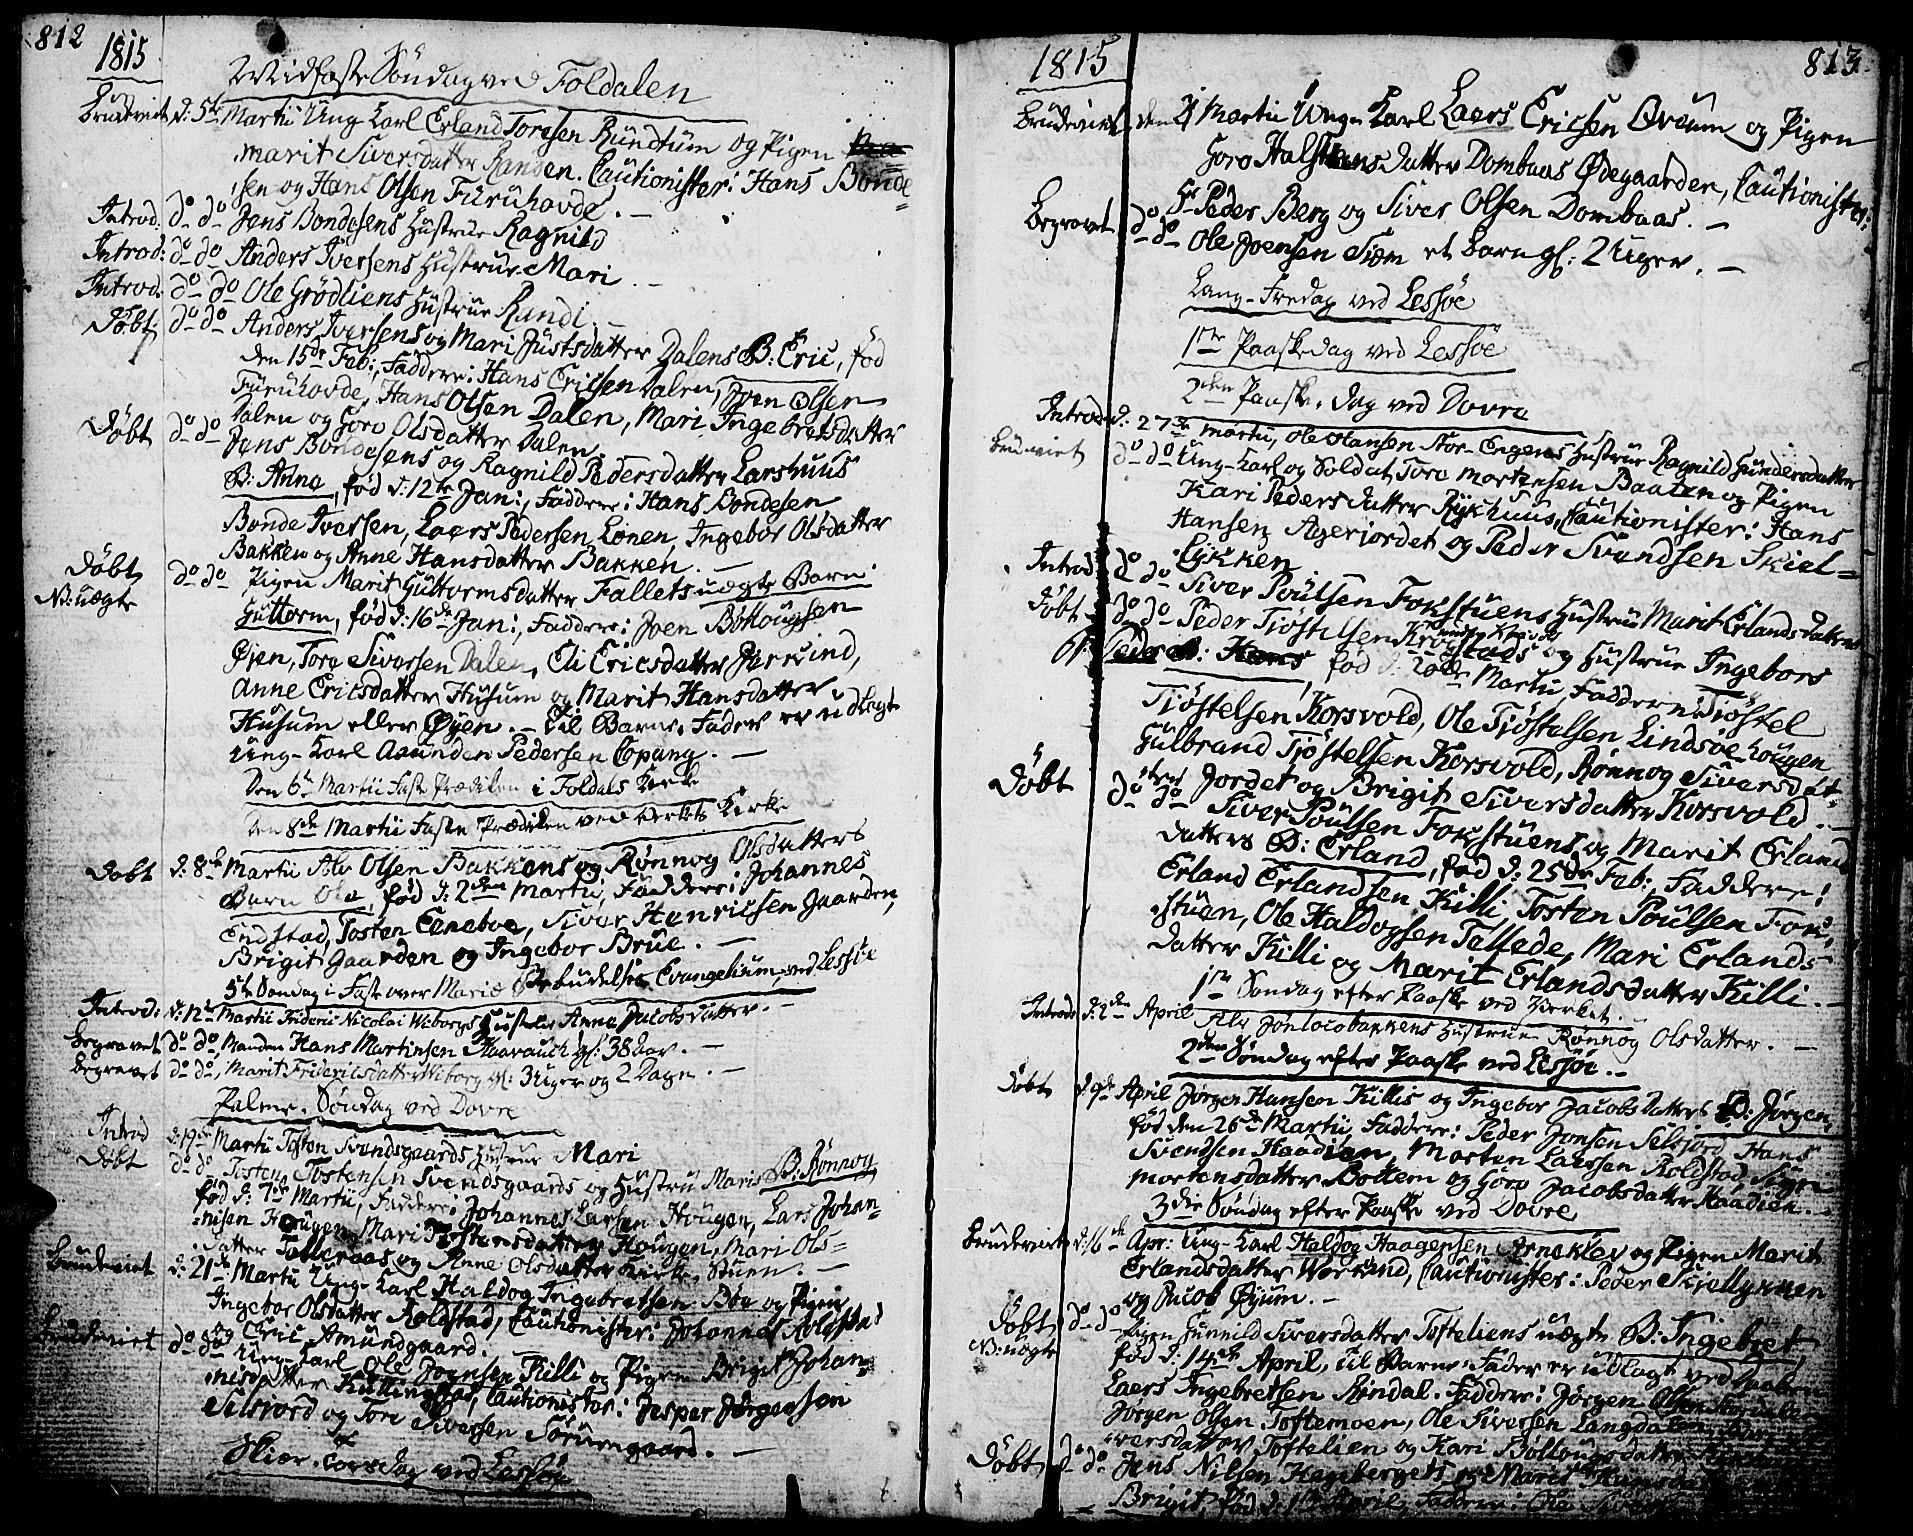 812
1815
Midfaste Söndag ved Foldalen
Brudeviet, d: 5te Martii Ung Karl Erland Toresen Rundtum og Pigen
Marit Siversdatter Randen. Cautionister: Hans Bonde
sen og Hans Olsen Furuhovde. —
Introd: do do Jens Bondesens Hustrue Ragnild
Introd: do do Anders Iversens Hustrue Mari
Introd. do do Ole Grødliens Hustrue Randi
Døbt do do Anders Iversens og Mari Justsdatter Dalens B: Eric, fød
den 15de Feb:, Faddere: Hans Ericsen Dalen, Joen Olsen
Furuhovde, Hans Olsen Dalen, Mari Ingebretsdatter
Dalen og Goro Olsdatter Dalen.
Døbt do do Jens Bondesens og Ragnild Pedersdatter Larshuus
B: Anne, fød d: 12te Jan:, Faddere: Hans Bondesen
Bonde Iversen, Laers Pedersen Lonen, Ingebor Olsdatter
Bakken og Anne Hansdatter Bakken. —
Døbt do do Pigen Marit Guttormsdatter Fallets uægte Barn
N: uægte
Guttorm, fød d: 16de Jan:, Faddere: Joen Bottougsen
Øien, Tore Siversen Dalen, Eli Ericsdatter Jerrind,
Anne Ericsdatter Husum og Marit Hansdatter
Husum eller Øyen. — Til Barne-Fader er udlagt
Ung-Karl Amunden Pedersen Copang. —
Den 6te Martii Faste Prædiken i Foldals Kirke
Den 8de Martii Faste Prædiken ved Verkets Kirke
Døbt d: 8de Martii Alv Olsen Bakkens og Rønnog Olsdatters
Barn Ole, fød d: 2den Martii, Faddere: Johannes
Endstad, Tosten Eeneboe, Siver Henricsen Gaarden,
Brigit Gaarden og Ingebor Brue. —
5te Søndag i Fast over Mariæ Bebudelses Evangelium, ved Lessøe
Introd: d: 12te Martii Frideric Nicolai Wiborgs Hustrue Anne Jacobsdatter. —
Begravet do do, Manden Hans Martinsen gl: 38 Aar. —
Begravet do do, Marit Fridericsdatter Wiborg gl: 3 Uger og 2 Dage. —
Palme-Søndag ved Dovre
Introd d: 19de Martii Tosten Svendsgaards Hustrue Mari
Døbt do do Tosten Tostensen Svendsgaards og Hustru Maris B: Rønnog
fød d: 7de Martii, Faddere: Johannes Larsen Hougen, Lars Johan-
nisen Hougen, Mari Tostensdatter Hougen, Mari Ols-
datter Tolleraas og Anne Olsdatter Kirke-Stuen. —
Brudeviet d: 21de Martii Ung-Karl Haldog Ingebretsen Bøe og Pigen
Ingebor Olsdatter Roldstad, Cautionister: Johannes Rolstad
og Eric Amundgaard. —
Brudeviet do do Ung-Karl Ole Jognsen Killi og Pigen Brigit Johan-
nisdatter Kullingstad, Cautionister: Jesper Jørgensen
Selsiord og Tore Siversen Sørumgaard. —
Skier-Torsdag ved Lessøe
1815
813
Brudeviet, den Martii Ung-Karl Laers Ericsen Øveum og Pigen
Goro Halstensdatter Dombaas Ødegaarden, Cautionister:
Peder Berg og Siver Olsen Dombaas. —
Begravet do do Ole Joensen Siem et Barn gl: 2 Uger. —
Lang-Fredag ved Lessøe
1ste Paaskedag ved Lessøe
2den Paaske-dag ved Dovre
Introd d: 27de Martii, Ole Hansen Stor-Engens Hustrue Ragnild Gundersdatter
Brudeviet do do Ung-Karl og Soldat Tore Mortensen Baaten og Pigen
Kari Pedersdatter Rykhuus, Cautionister: Hans
Hansen Agerjordet og Peder Svendsen Skiel-
Lykken
Introd do do Siver Poulsen Fokstuens Hustrue Marit Erlandsdatter
Døbt do do Peder Tiöstelsen Krogstads og Hustrue Ingebors
Peder B: Hans, fød d: 20de Martii, Faddere: Tiöstel
Tiöstelsen Korsvold, Ole Tiöstelsen Lindsøe Lougen
Gulbrand Tiöstelsen Korsvold, Rønnog Siversdat-
ter Jordet og Brigit Siversdatter Korsvold. —
Døbt do do Siver Poulsen Fokstuens og Marit Erlands
datters B: Erland, fød d: 25de Feb:, Faddere:
Erland Erlandsen Killi, Tosten Poulsen Fok-
stuen, Ole Haldogsen Tallede, Mari Erlands-
datter Killi og Marit Erlandsdatter Killi. —
1ste Søndag efter Paaske ved Verket.
Introd: d: 2den April Alv Jønlocobakkens Hustrue Rønnog Olsdatter. —
2den Søndag efter Paaske ved Lessøe. —
Døbt d: 9de April Jørgen Hansen Killis og Ingebor Jacobsdatters B: Jørgen,
fød den 26de Martii, Faddere: Peder Jonsen Selsiord, Hans
Svendsen Haadien, Morten Larsen Roldstad, Sigri
Mortensdatter Bottem og Goro Jacobsdatter Haadien. —
3die Søndag efter Paaske ved Dovre
Brudeviet d: 16de Apr: Ung-Karl Haldog Haagensen Arneklev og Pigen Marit
Erlandsdatter Workind, Cautionister: Peder Skiellykken
og Jacob Øyum. —
Døbt do do Pigen Gunnild Siversdatter Tofteliens uægte B: Ingebret,
N: uægte
fød d: 14de April, til Barne-Fader er udlagt ved
Laers Ingebretsen Rindal. Faddere: Jørgen Olsen
Jørgen Olsen Toftemoen, Ole Siversen Langdalen,
versdatter Toftelien og Kari Bøllougsdatter
Døbt do do Jens Nilsen Hageberget og Marit
Brigit fød d: 1ste April, Faddere: Ole Siversen